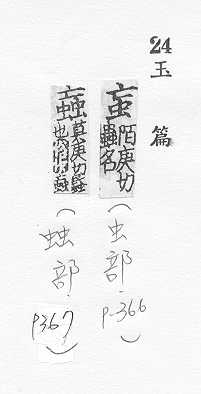 24
玉篇
䖟 陌庚切 蟲名
(虫部. p-366)
蝱 莫庚切
(䖵部. p367)